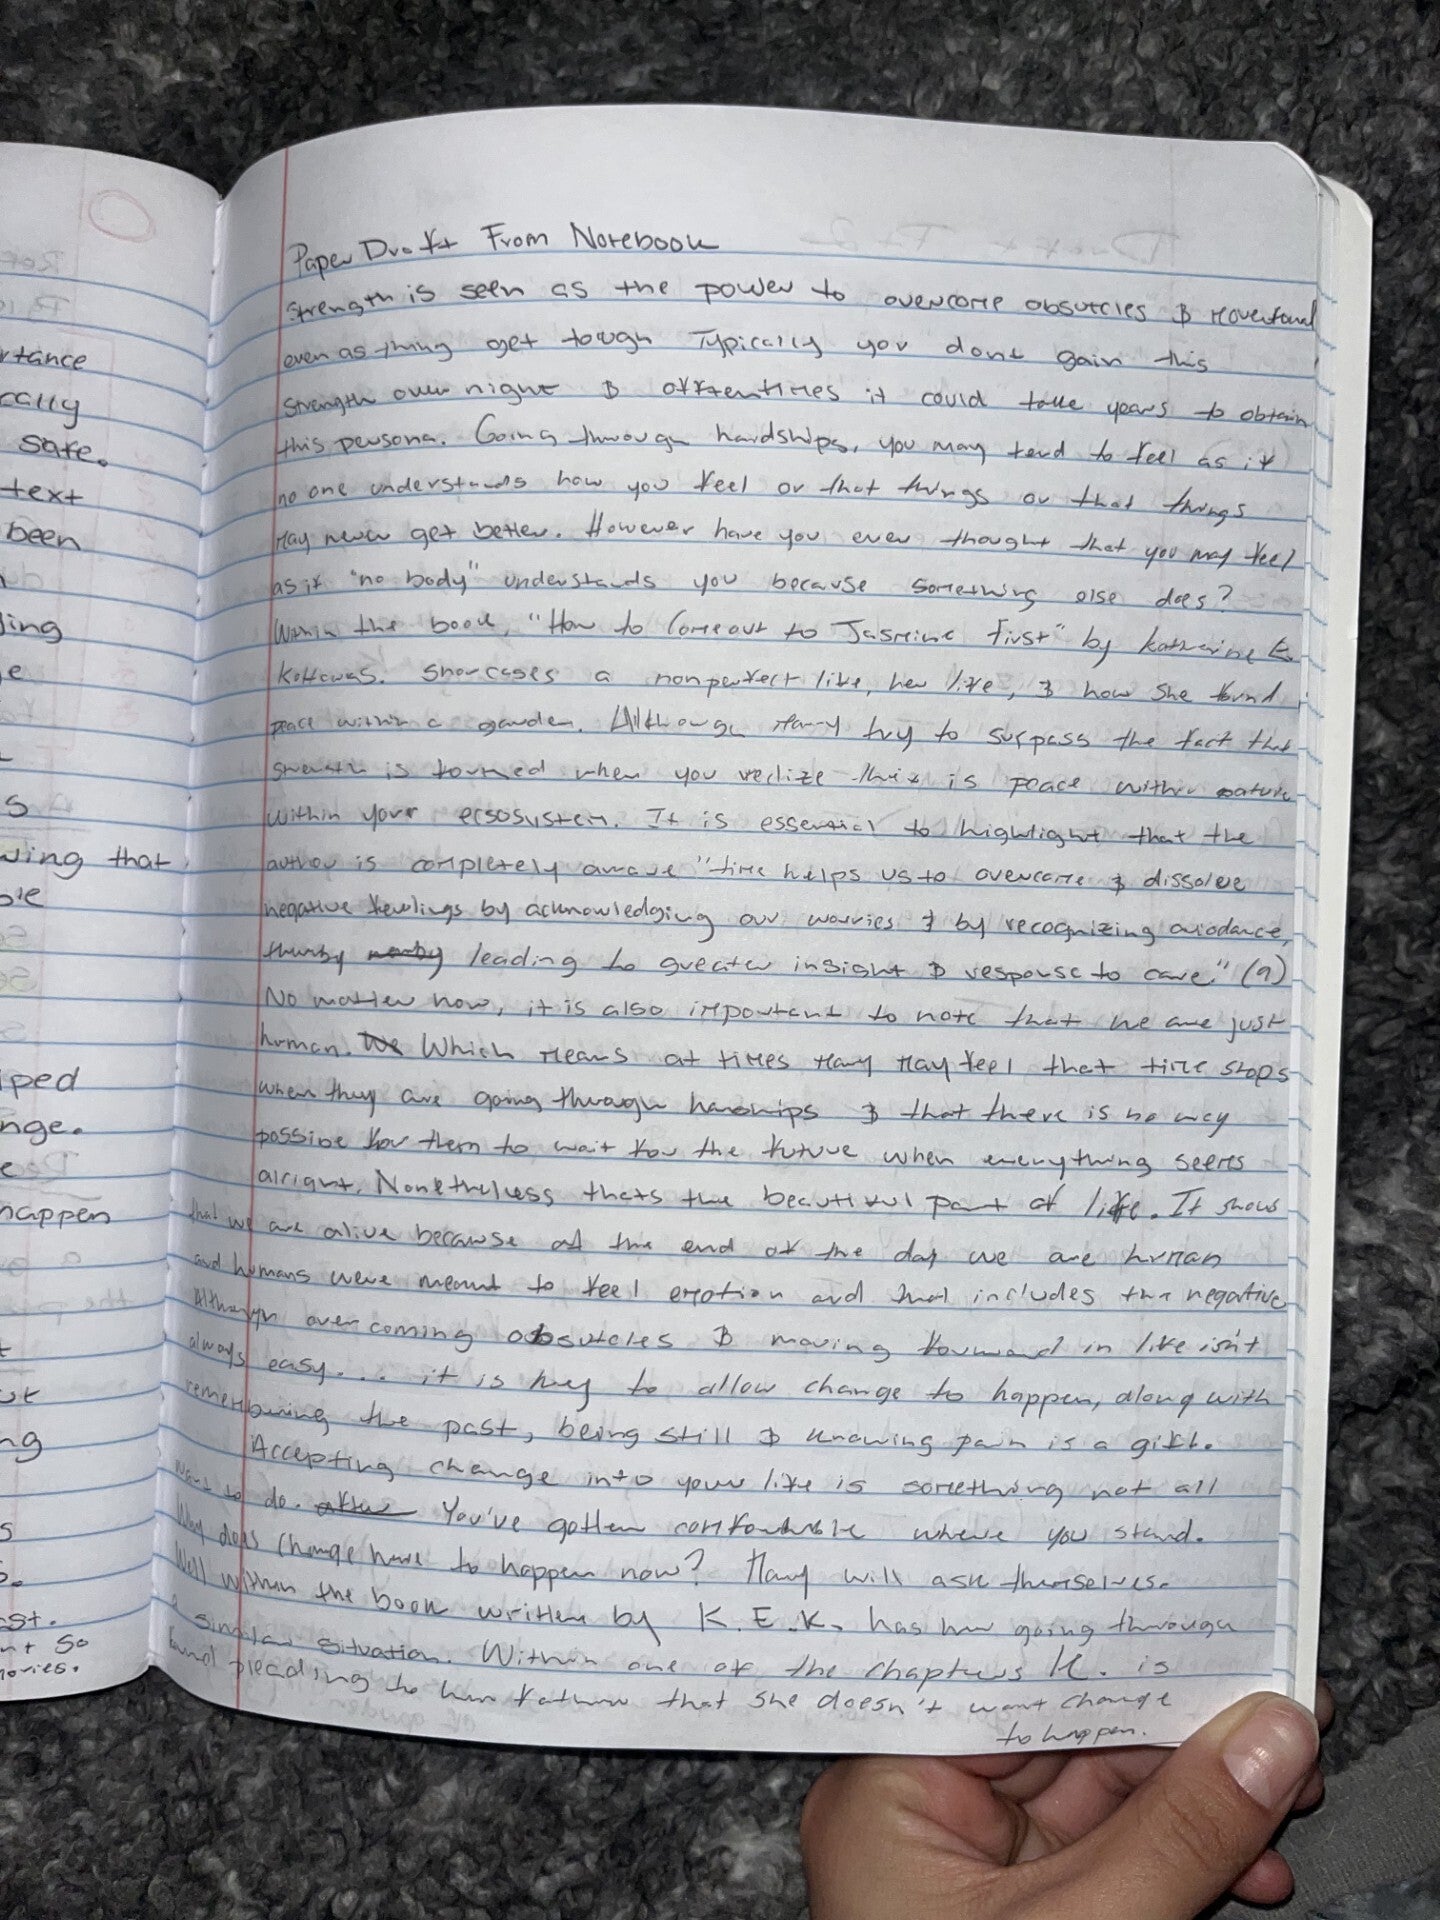 Paper Draft From Notebook
Strength is seen as the power to overcome obsutcles & moveforward
even as thing get tough Typically you dont gain this
strength over night & offtentimes it could take years to obtain
this persona. Going through hardships, you may tend to feel as if
no one understands how you feel or that things or that things
may never get better. However have you ever thought that you may feel
as if "no body" understands you because something else does?
Within the book, "How to Comeout to Jasmine First" by Katherine E.
showcases a nonperfect life, her life, & how she found
peace within a garden. Although many try to surpass the fact that
strength is formed when you realize this is peace within nature
within your ecsosystem. It is essential to highlight that the
author is completely aware "time helps us to overcome & dissolve
negative feelings by acknowledging our worries & by recognizing aviodance,
thurby leading to greater insight & response to care." (9)
No matter how, it is also important to note that we are just
human. We Which means at times many may feel that time stops
when they are going through harships & that there is no way
possibe for them to wait for the future when everything seems
alright. Nonetheless thats the beautiful part of life. It shows
that we are alive because at the end of the day we are human
and humans were meant to feel emotion and that includes the negative
Although overcoming obsutcles & moving forward in life isn't
always easy... it is key to allow change to happen, along with
remembering the past, being still & knowing pain is a gift.
Accepting change into your life is something not all
want to do. You've gotten comfortable where you stand.
Why does change have to happen now? Many will ask themselves.
Well within the book written by K.E.K. has her going through
a similar situation. Within one of the chapters K. is
found pleading to her father that she doesn't want change
to happen.
rtance
cally
safe.
text
been
ing
e
s
wing that
ple
iped
nge.
e
happen
t
ut
ng
s
s.
st.
nt so
ories.